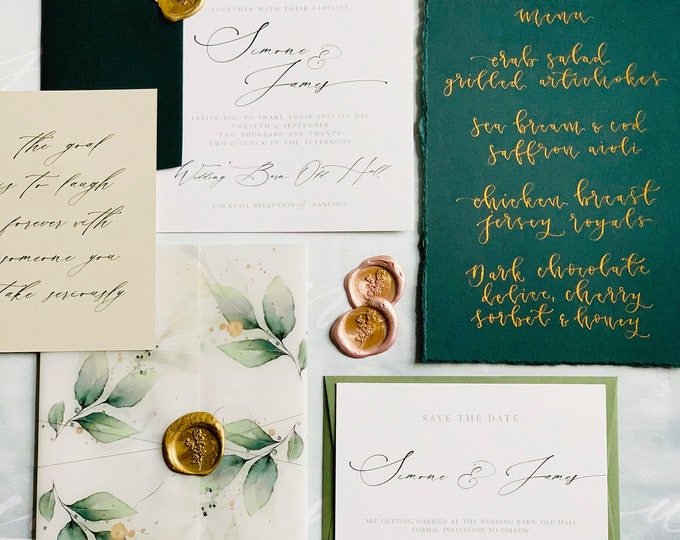 TOGETHER WITH THEIR FAMILIES
Simone
&
James
INVITE YOU TO SHARE THEIR SPECIAL DAY
TWELFTH OF SEPTEMBER
TWO THOUSAND AND TWENTY
TWO O'CLOCK IN THE AFTERNOON
Wedding Barn, Old Hall
COCKTAIL RECEPTION & DANCING
menu
crab salad
grilled artichokes
sea bream & cod
saffron aioli
chicken breast
jersey royals
Dark chocolate
delice, cherry
sorbet & honey
the goal
is to laugh
forever with
someone you
take seriously
SAVE THE DATE
Simone & James
ARE GETTING MARRIED AT THE WEDDING BARN, OLD HALL
FORMAL INVITATION TO FOLLOW